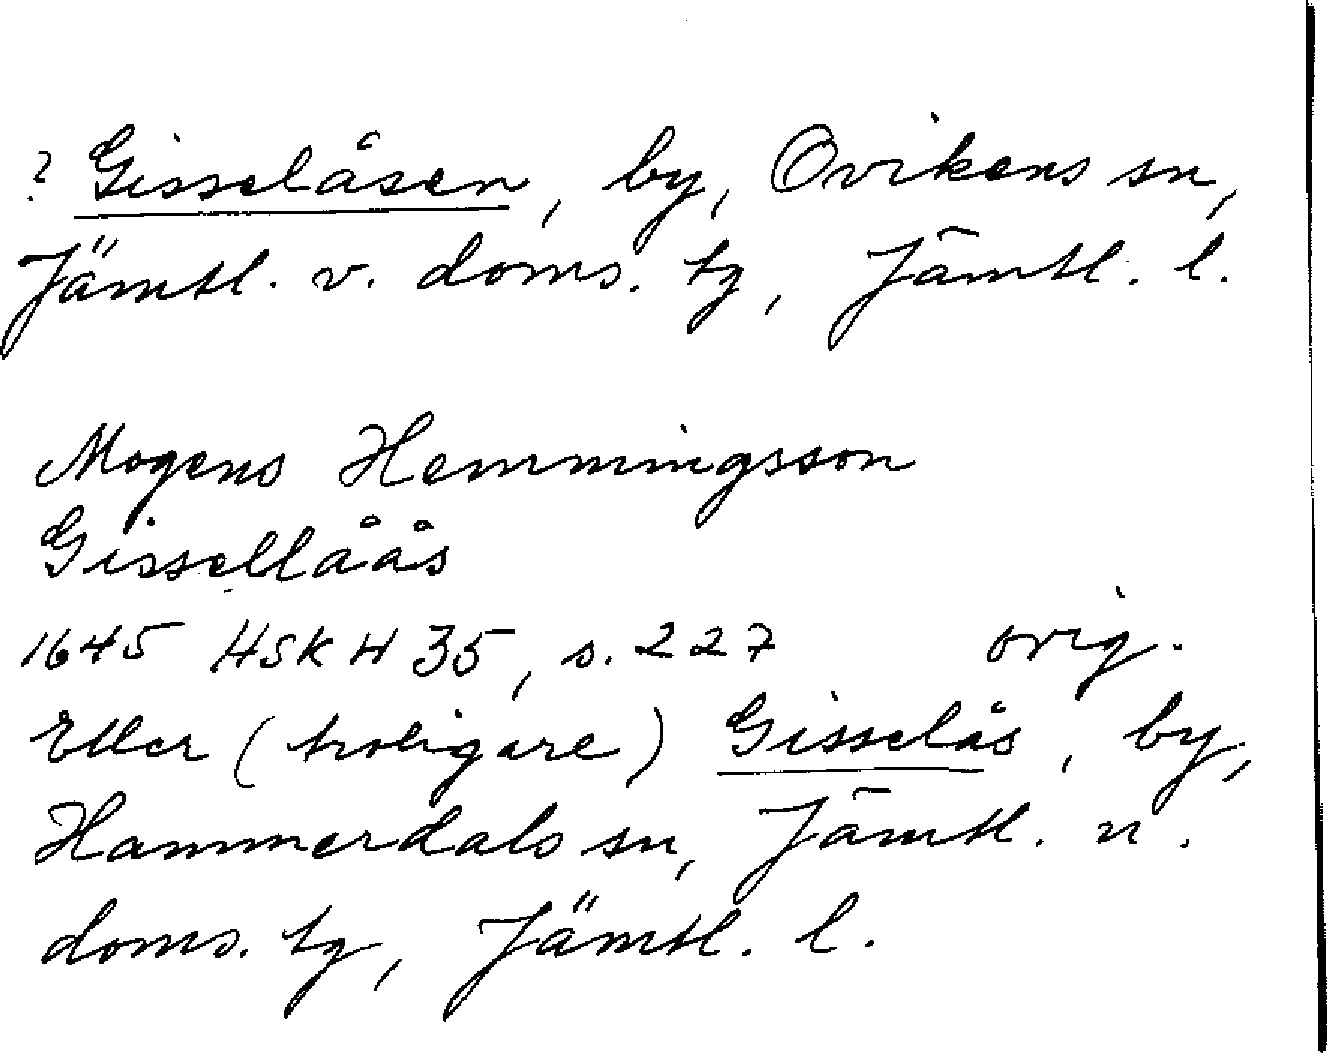 ? Gisselåsen, by, Ovikens sn,
Jämtl. v. doms. tg, Jämtl. l.
Mogens Hemmingsson
Gisselláås
1645 HSK H 35, s. 227 orig.
Eller (troligare) Gisselås, by,
Hammerdals sn, Jämtl. n.
doms. tg, Jämtl. l.